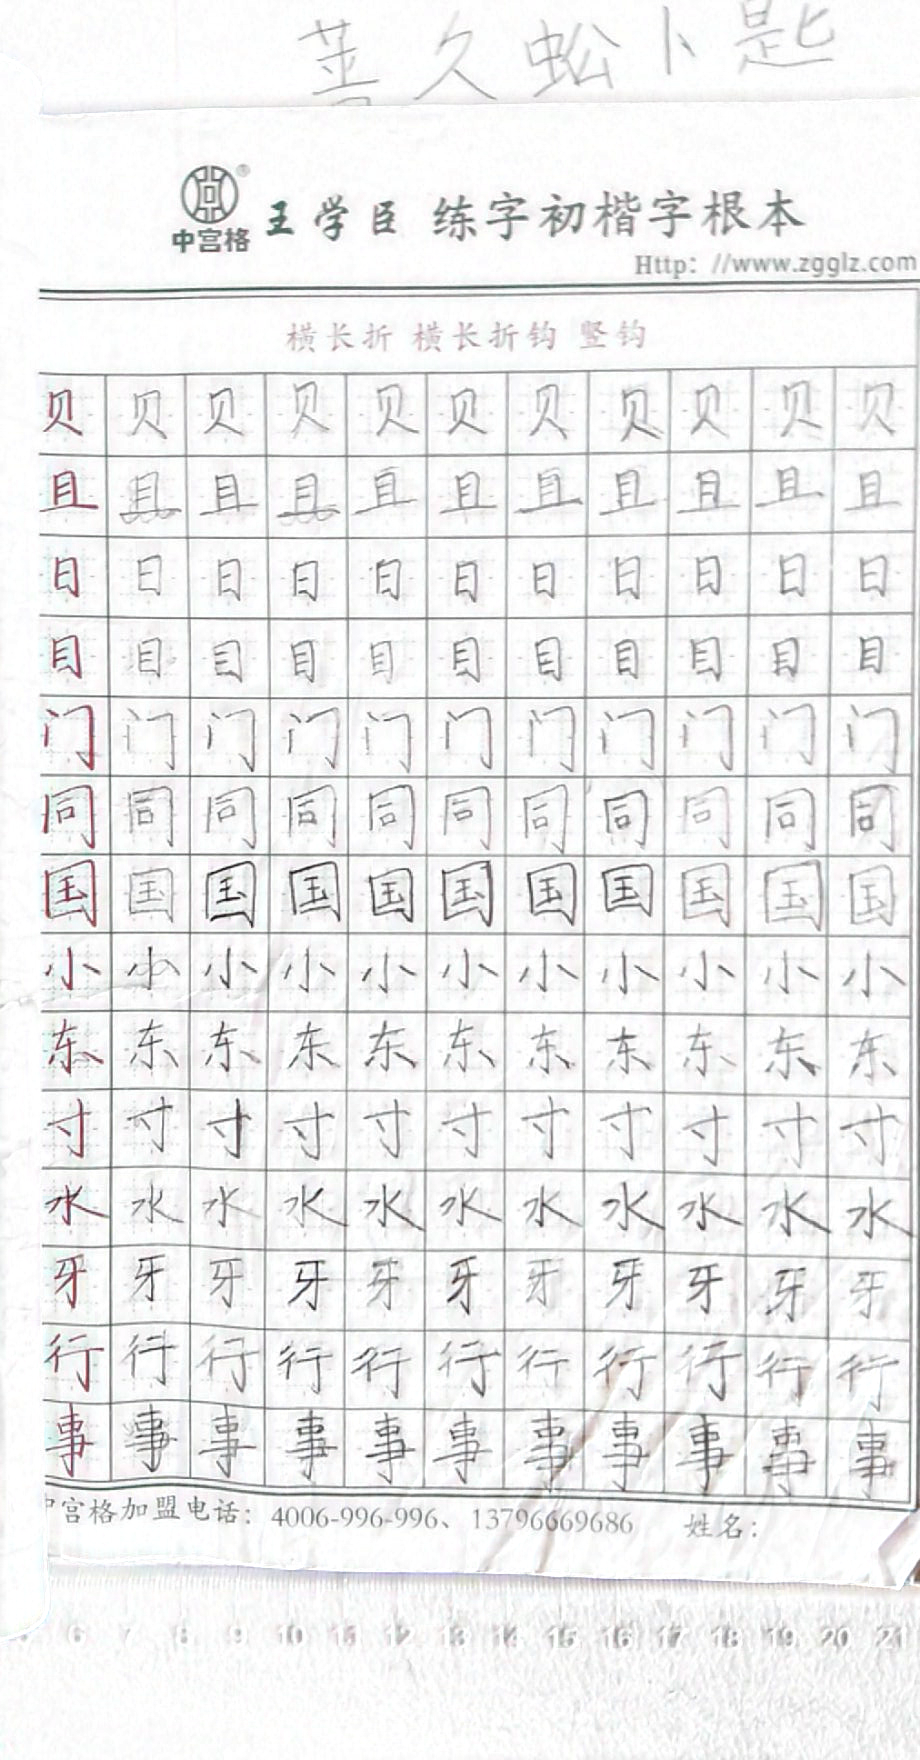 久 蚣 卜 匙
中宫格 ® 王学臣 练字初楷字根本
Http: //www.zgglz.com
横长折 横长折钩 竖钩
贝 贝 贝 贝 贝 贝 贝 贝 贝 贝 贝
且 且 且 且 且 且 且 且 且 且 且
日 日 日 日 日 日 日 日 日 日 日
目 目 目 目 目 目 目 目 目 目 目
门 门 门 门 门 门 门 门 门 门 门
同 同 同 同 同 同 同 同 同 同 同
国 国 国 国 国 国 国 国 国 国 国
小 小 小 小 小 小 小 小 小 小 小
东 东 东 东 东 东 东 东 东 东 东
寸 寸 寸 寸 寸 寸 寸 寸 寸 寸 寸
水 水 水 水 水 水 水 水 水 水 水
牙 牙 牙 牙 牙 牙 牙 牙 牙 牙 牙
行 行 行 行 行 行 行 行 行 行 行
事 事 事 事 事 事 事 事 事 事 事
中宫格加盟电话：4006-996-996、13796669686 姓名：
6 7 8 9 10 11 12 13 14 15 16 17 18 19 20 21